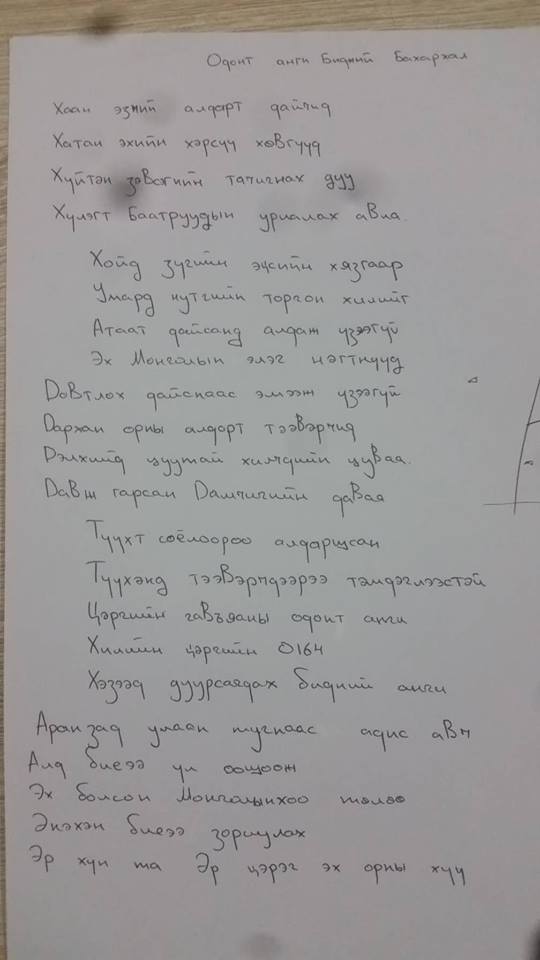 Одонт анги Бидний Бахархал
Хаан эзний алдарт дайчид
Хатан эхийн хэрсүү хөвгүүд
Хүйтэн зэвсгийн тачигнах дуу
Хүлэгт Баатруудын уриалах авиа.
Хойд зүгийн эцсийн хязгаар
Умард нутгийн торгон хилийг
Атаат дайсанд алдаж үзээгүй
Эх Монголын элэг нэгтнүүд
Довтлох дайснаас эмээж үзээгүй
Дархан орны алдарт тээвэрчид
Дэлхийд цуутай хилчдийн цуваа.
Давж гарсан Дамчигийн даваа
Түүхт соёлоороо алдаршсан
Түүхэнд тээвэрчдээрээ тэмдэглээстэй
Цэргийн гавъяаны одонт анги
Хилийн цэргийн 0164
Хэзээд дуурсагдах бидний анги
Аранзад улаан тугнаас адис авч
Алд биеээ үл ошоож
Эх болсон Монголынхоо төлөө
Энэхэн биеээ зориулах
Эр хүн та Эр цэрэг эх орны хүү